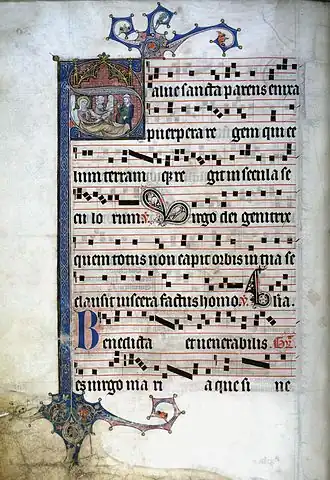 alue sancta parens enixa
puerpera re gem qui ce
lum terram q̄ȝ re git in secula se
cu lo rum ℣. Virgo dei genitrix
quem totus non capit orbis in tua se
clausit uiscera factus homo ℣. A lia.
Benedicta et uenerabilis G̃r
es uirgo ma ri a que si ne